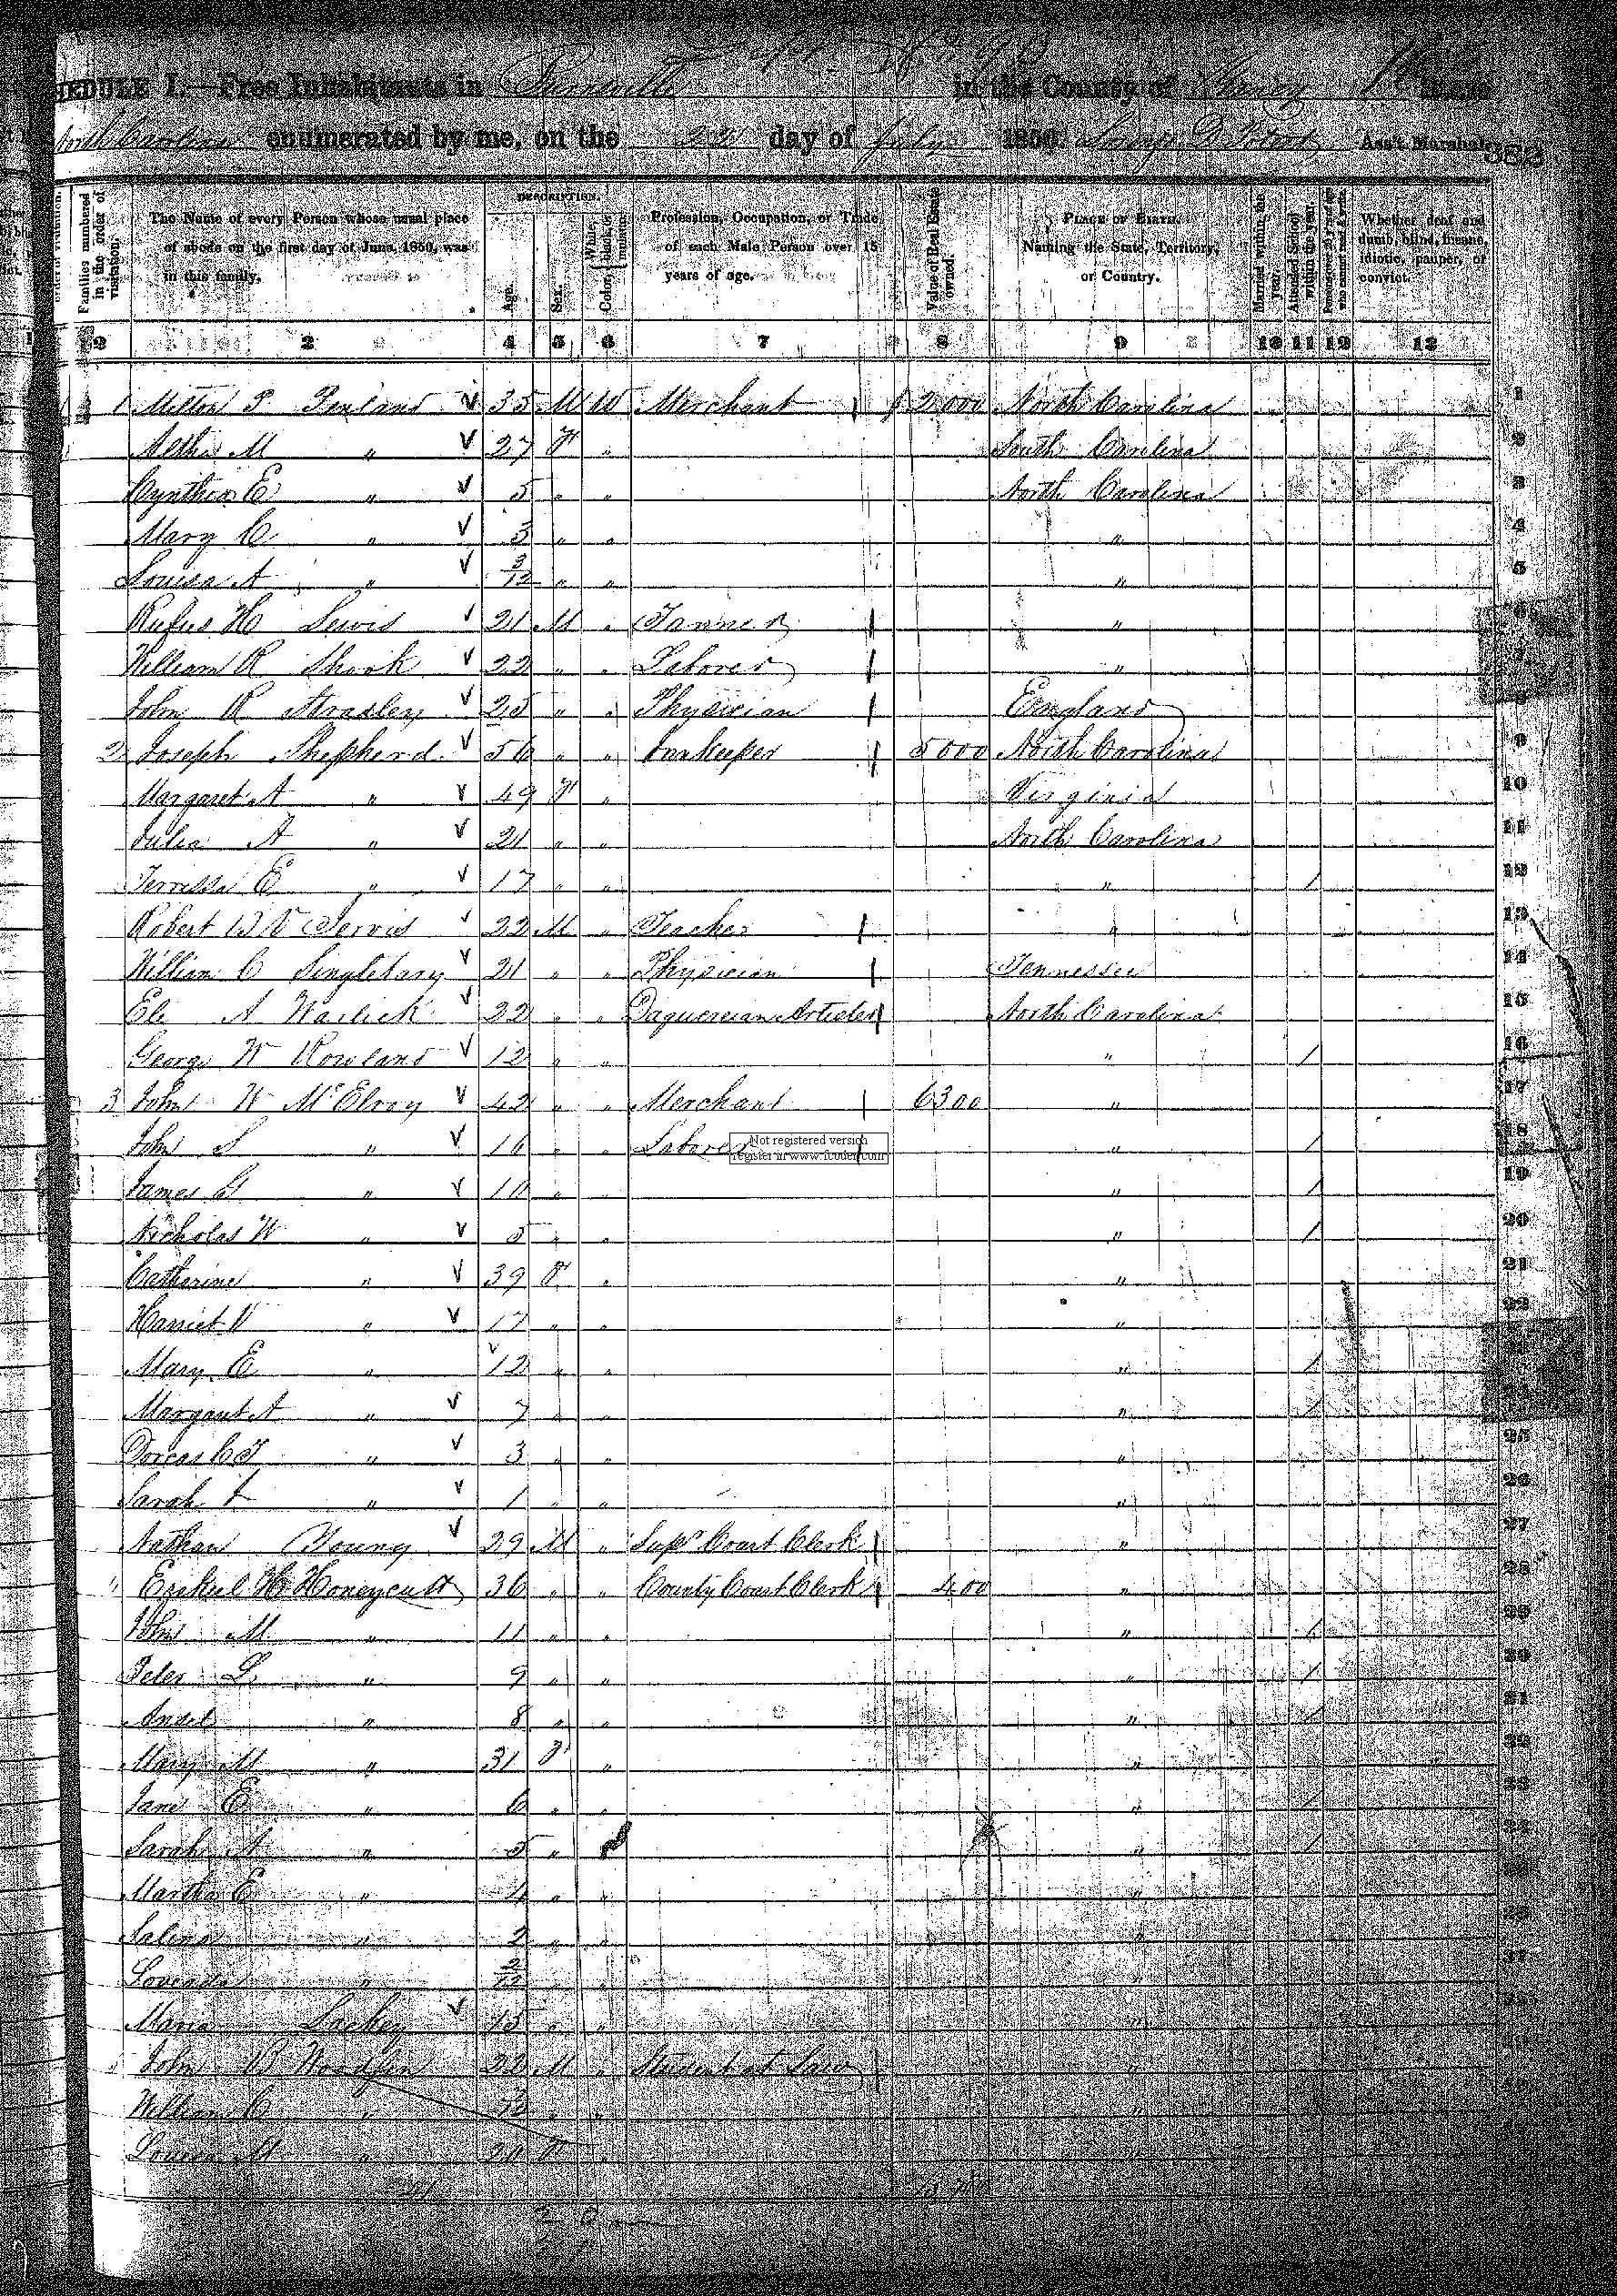 SCHEDULE I.—Free Inhabitants in Burnsville in the County of Yancey State
North Carolina enumerated by me, on the day of July 1850. Ass't. Marshal.
383
Families numbered in the order of visitation.
The Name of every Person whose usual place of abode on the first day of June, 1850, was in this family.
DESCRIPTION.
Age.
Sex.
Color, White, black, or mulatto.
Profession, Occupation, or Trade of each Male Person over 15 years of age.
Value of Real Estate owned.
PLACE OF BIRTH. Naming the State, Territory, or Country.
Married within the year.
Attended School within the year.
Persons over 20 y'rs of age who cannot read & write.
Whether deaf and dumb, blind, insane, idiotic, pauper, or convict.
2 3 4 5 6 7 8 9 10 11 12 13
1 Milton P. Penland 35 M W Merchant $ 2000 North Carolina 1
M " 27 F " South Carolina 2
Cynthia E " 5 " " North Carolina 3
Mary C " 3 " " " 4
Louisa A " 3/12 " " " 5
Rufus H Lewis 21 M " Tanner " 6
William R 22 " " Laborer " 7
John R Stradley 25 " " Physician England 8
2 Joseph Shepherd 56 " " Innkeeper 5000 North Carolina 9
Margaret A " 49 F " Virginia 10
Julia A " 21 " " North Carolina 11
Terressa E " 17 " " " 1 12
Robert B V 22 M " Teacher " 13
William C Singletary 21 " " Physician Tennessee 14
Eli A Warlick 22 " " Daguerreian North Carolina 15
George W Rowland 12 " " " 1 16
3 John W McElroy 42 " " Merchant 6300 " 17
John S " 16 " " Laborer " 1 18
Not registered version
register in www.fcoder.com
James G " 10 " " " 1 19
Nicholas W " 5 " " " 1 20
Catharine " 39 F " " 21
Harriet V " 17 " " " 22
Mary E " 12 " " " 1
Margaret A " 7 " " " 1
Dorcas C J " 3 " " " 25
Sarah L " 1 " " " 26
Nathan Young 29 M " Sup Court Clerk " 27
Ezekiel H Honeycutt 36 " " County Court Clerk 400 " 28
John M " 11 " " " 1 29
Peter L " 9 " " " 1 30
Ansel " 8 " " " 1 31
Mary M " 31 F " " 32
Jane E " 6 " " " 1 33
Sarah A " 5 " " 1 34
Martha E " 4 " " " 35
Salina " 2 " " "
" 2/12 " " " 37
Maria Lackey 15 " " "
John B Woodfin 22 M " Student at Law "
William C " "
Louisa M " F "